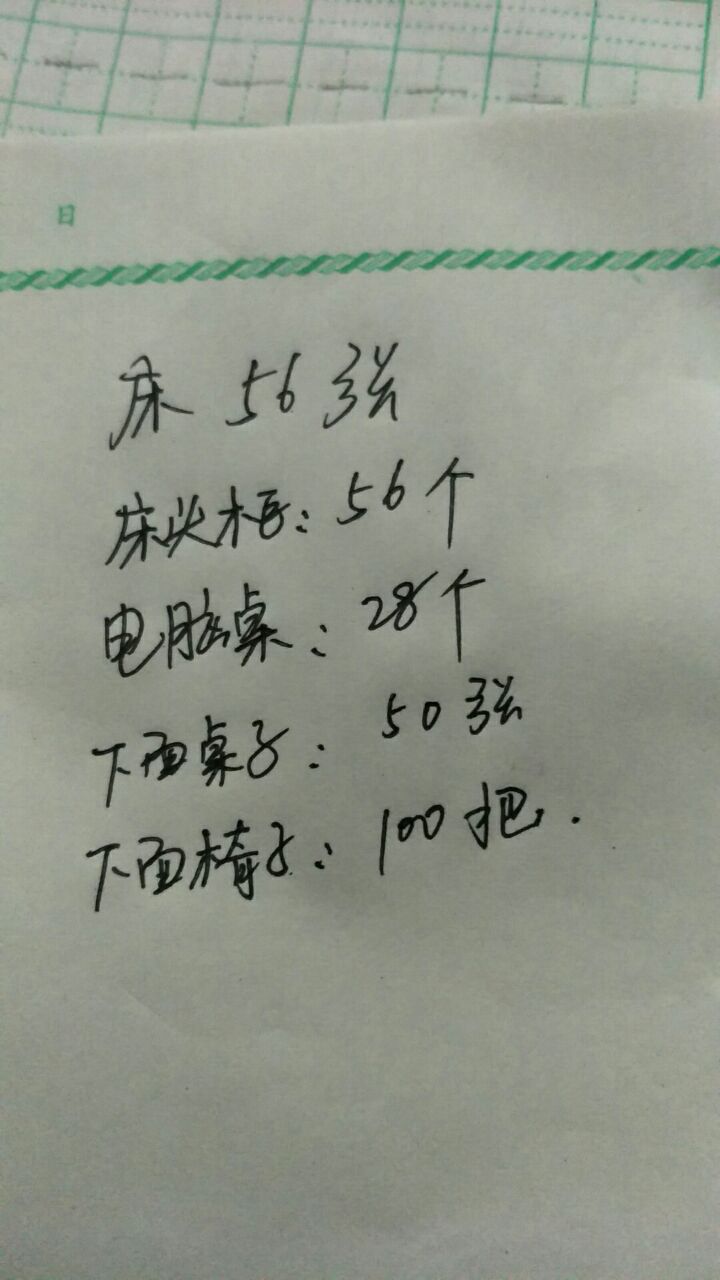 日
床 56 张
床头柜：56个
电脑桌：28个
下面桌子：50张
下面椅子：100把.